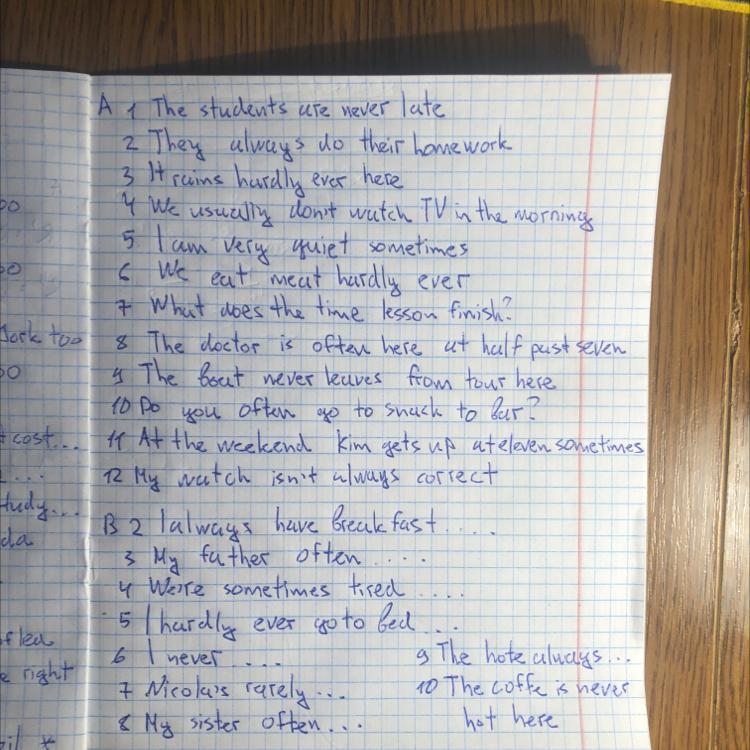 A 1 The students are never late
2 They always do their homework
3 It rains hardly ever here
4 We usually don't watch TV in the morning
5 I am very quiet sometimes
6 We eat meat hardly ever
7 What does the time lesson finish?
8 The doctor is often here at half past seven
9 The boat never leaves from tour here
10 Do you often go to snack to bar?
11 At the weekend Kim gets up at eleven sometimes
12 My watch isn't always correct
B 2 I always have breakfast....
3 My father often ....
4 We're sometimes tired ....
5 I hardly ever go to bed ...
6 I never ....
7 Nicola's rarely ...
8 My sister often ...
9 The hote always...
10 The coffe is never
hot here
oo
oo
York too
oo
t cost...
...
tudy...
da
f led
e right